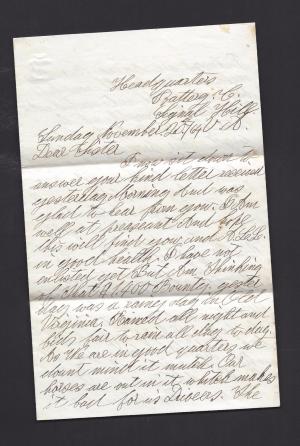 Headquarters
Battery C.
Signal Hill.
Sunday November 64
Dear Sister
I now sit down to
answer your kind letter received
yesterday Morning And was
glad to hear from you. I Am
well at preasant And hope
this will find you and
in good health. I have not
enlisted yet But Am Thinking
Bounty. yester
day was a rainy day in Old
Virginia. Rained all night and
bids fair to rain all day to day.
As We are in good quarters we
dount mind it much. Our
horses are out in it which makes
it bad for us Drivers. the